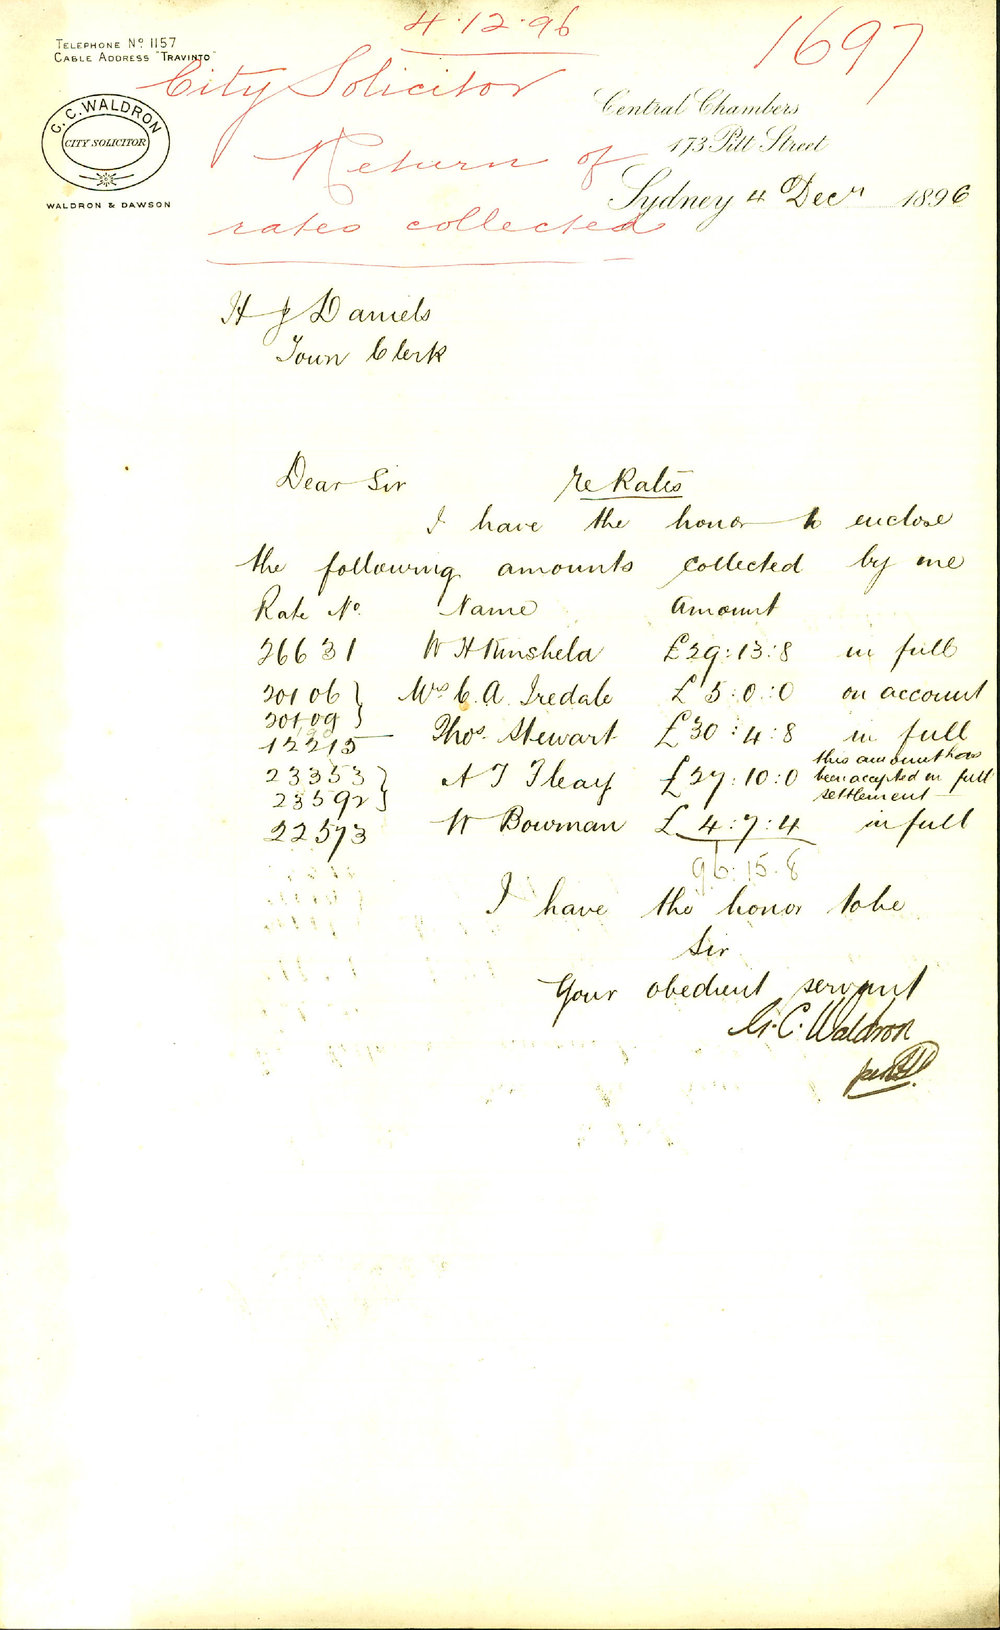 4.12.96
1697
TELEPHONE No 1157
CABLE ADDRESS "TRAVINTO"
City Solicitor
G. C. WALDRON
CITY SOLICITOR
WALDRON & DAWSON
Central Chambers
173 Pitt Street
Sydney 4 Decr 1896
Return of
rates collected
H J Daniels
Town Clerk
Dear Sir
re Rates
I have the honor to enclose
the following amounts collected by me
Rate No. Name Amount
26631 W H Kinshela £29:13:8 in full
20106 } Mrs C. A. Iredale £5:0:0 on account
20109 }
12215 Thos. Stewart £30:4:8 in full
23353 } A T £27:10:0 this amount has
been accepted in full
settlement
23592 }
22573 W Bowman £4:7:4 in full
96.15.8
I have the honor to be
Sir
Your obedient servant
G. C. Waldron